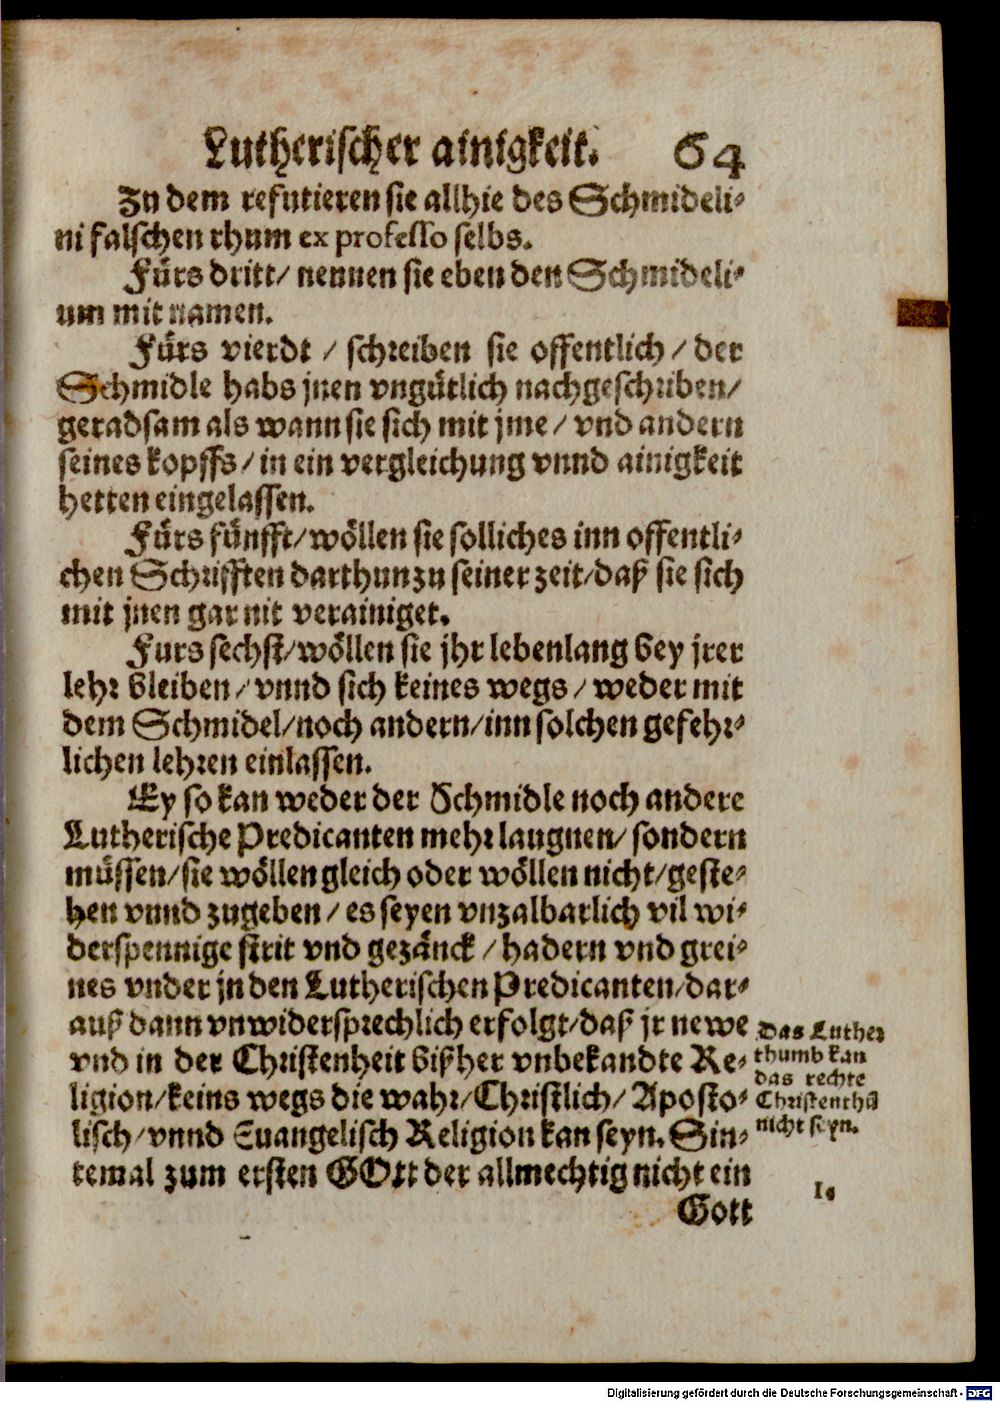 Lutherischer ainigkeit. 64
Zu dem refutieren sie allhie des Schmideli⸗
ni falschen rhum ex professo selbs.
Fürs dritt/ nennen sie eben den Schmideli⸗
um mit namen.
Fürs vierdt / schreiben sie offentlich / der
Schmidle habs jnen vngütlich nachgeschriben/
geradsam als wann sie sich mit jme / vnd andern
seines kopffs / in ein vergleichung vnnd ainigkeit
hetten eingelassen.
Fürs fünfft/wöllen sie solliches inn offentli⸗
chen Schrifften darthun zu seiner zeit/daß sie sich
mit jnen gar nit verainiget.
Furs sechst/wöllen sie jhr lebenlang bey jrer
lehr bleiben / vnnd sich keines wegs / weder mit
dem Schmidel/noch andern/inn solchen gefehr⸗
lichen lehren einlassen.
Ey so kan weder der Schmidle noch andere
Lutherische Predicanten mehr laugnen/ sondern
müssen/sie wöllen gleich oder wöllen nicht/geste⸗
hen vnnd zugeben / es seyen vnzalbarlich vil wi⸗
derspennige strit vnd gezänck / hadern vnd grei⸗
nes vnder jn den Lutherischen Predicanten/dar⸗
auß dann vnwidersprechlich erfolgt/daß jr newe
vnd in der Christenheit bißher vnbekandte Re⸗
ligion/keins wegs die wahr/Christlich/ Aposto⸗
lisch/vnnd Euangelisch Religion kan seyn. Sin⸗
temal zum ersten GOtt der allmechtig nicht ein
Gott
Das Luther
thumb kan
das rechte
Christenthū
nicht seyn.
1.
Digitalisierung gefördert durch die Deutsche Forschungsgemeinschaft - DFG